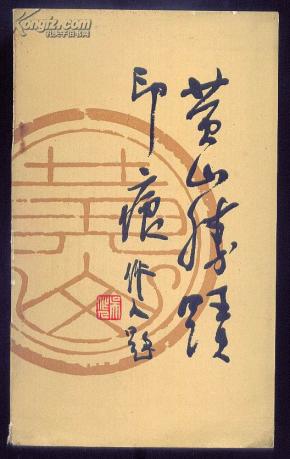 Kongfz.com
孔夫子旧书网
黄山勝蹟
印痕 作人題